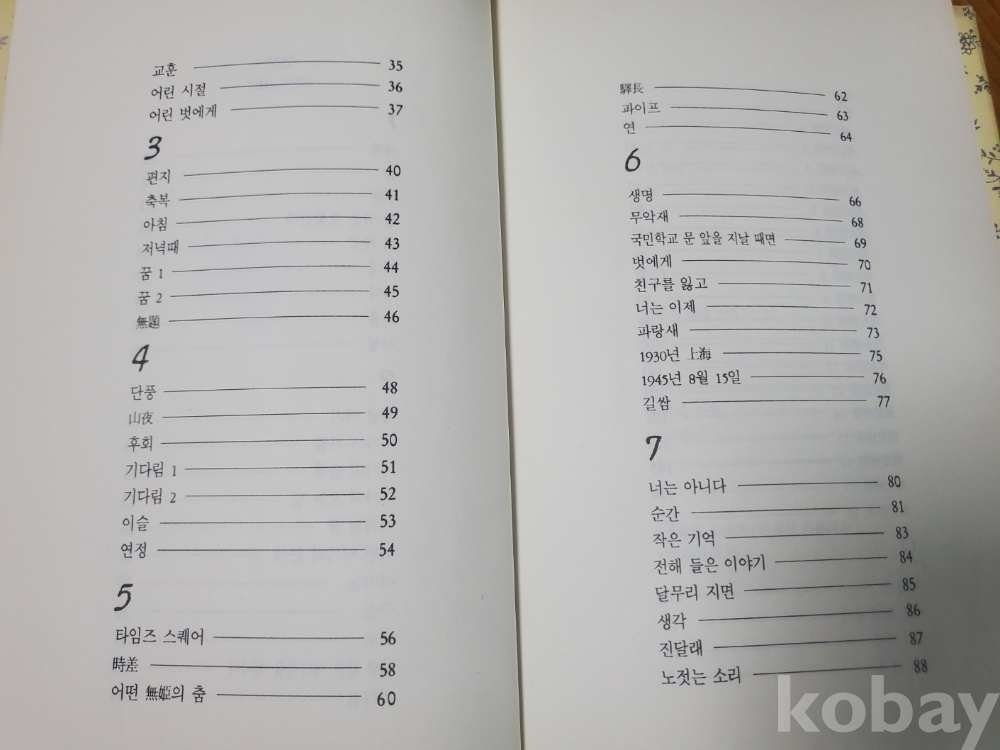 교훈 35
어린 시절 36
어린 벗에게 37
3
편지 40
축복 41
아침 42
저녁때 43
꿈 1 44
꿈 2 45
無題 46
4
단풍 48
山夜 49
후회 50
기다림 1 51
기다림 2 52
이슬 53
연정 54
5
타임즈 스퀘어 56
時差 58
어떤 無姫의 춤 60
驛長 62
파이프 63
연 64
6
생명 66
무악재 68
국민학교 문 앞을 지날 때면 69
벗에게 70
친구를 잃고 71
너는 이제 72
파랑새 73
1930년 上海 75
1945년 8월 15일 76
길쌈 77
7
너는 아니다 80
순간 81
작은 기억 83
전해 들은 이야기 84
달무리 지면 85
생각 86
진달래 87
노젓는 소리 88
kobay